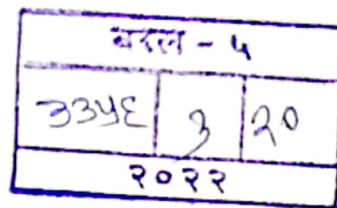 बरल - ५
३३५६ ३ २०
२०२२